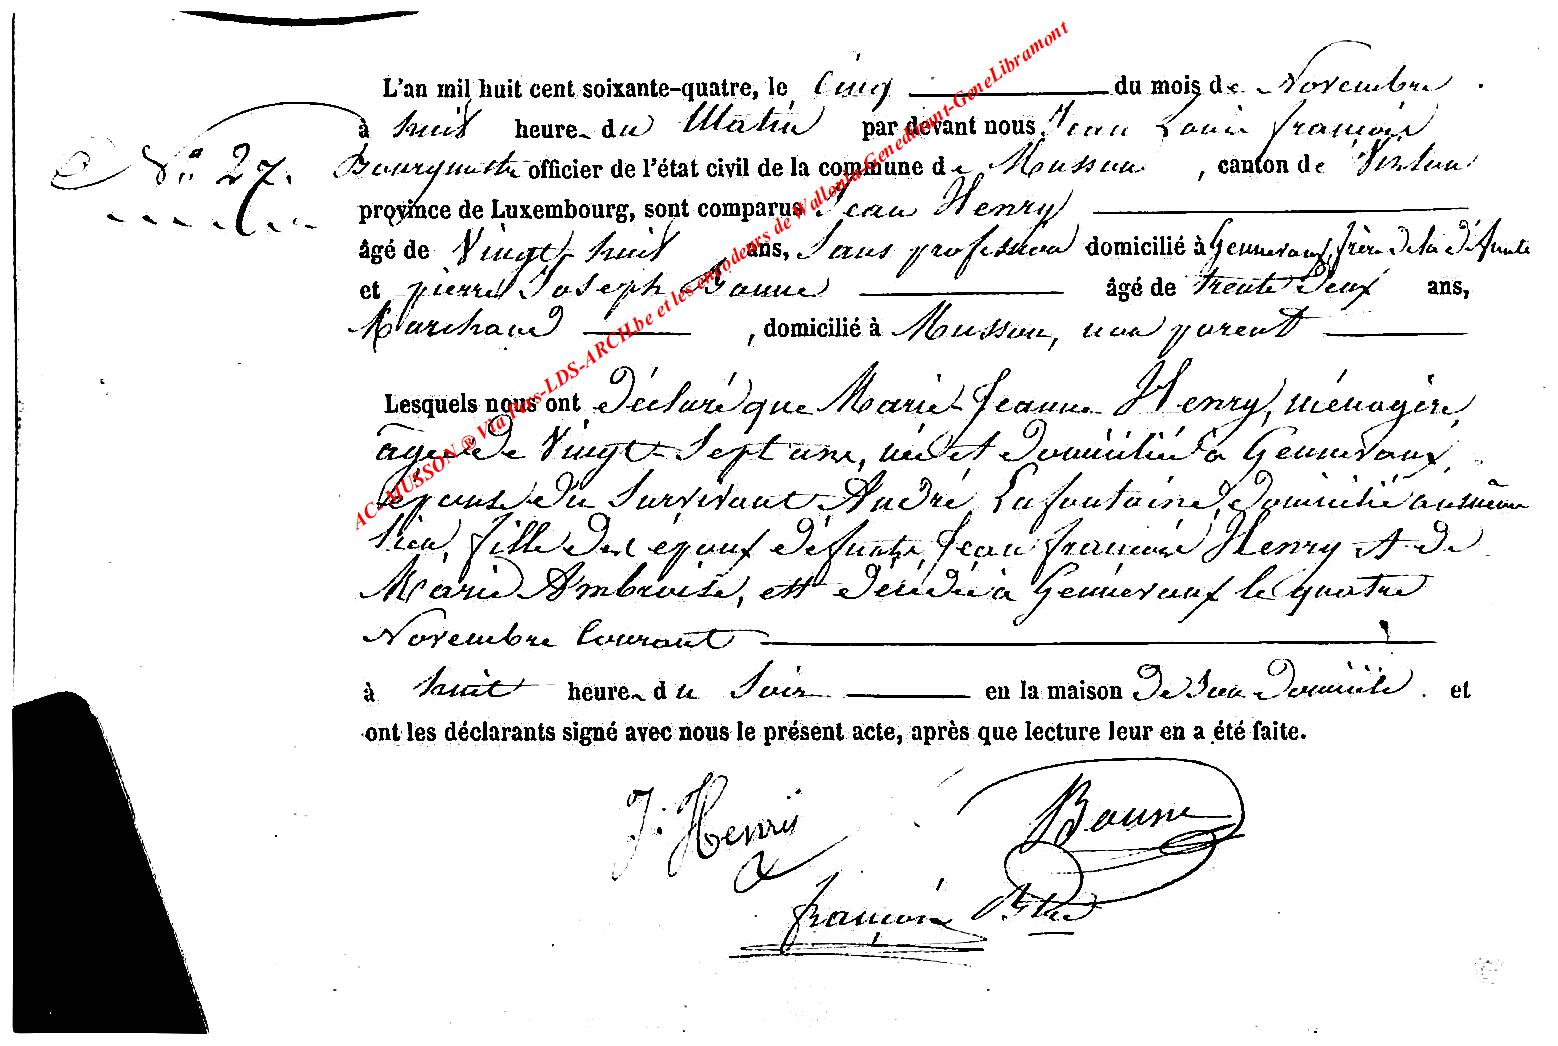 L'an mil huit cent soixante-quatre, le Cinq du mois de Novembre
N° 27.
à huit heure du Matin par devant nous Jean Louis françois
Bourgmestre officier de l'état civil de la commune de Musson, canton de Virton
province de Luxembourg, sont comparus Jean Henry
âgé de Vingt-huit ans, Sans profession domicilié à Gennevaux, frère de la défunte
et pierre Joseph Baune âgé de trente Deux ans,
Marchand, domicilié à Musson, non parent
Lesquels nous ont déclaré que Marie Jeanne Henry, ménagère,
âgée de Vingt-Sept ans, née et domiciliée à Gennevaux,
épouse du Survivant André Lafontaine, domicilié au même
lieu, fille des époux défunts, Jean françois Henry et de
Marie Ambroise, est décédée à Gennevaux le quatre
Novembre Courant
à huit heure du Soir en la maison De Son Domicile. et
ont les déclarants signé avec nous le présent acte, après que lecture leur en a été faite.
J. Henry
Baune
françois Bstre
AC-MUSSON ® Via Pars-LDS-ARCH.be et les encodeurs de Wallonia-Genedinant-GeneLibramont